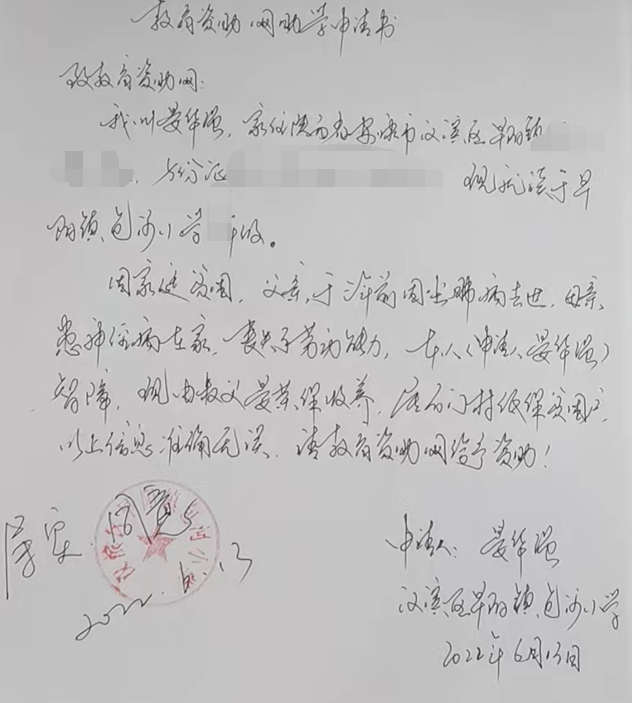 教育资助网助学申请书
致教育资助网:
我叫晏华强，家住陕西省安康市汉滨区早阳镇
身份证 现就读于早
阳镇包沙小学 年级。
因家庭贫困，父亲于 年前因尘肺病去世，母亲
患神经病在家，丧失了劳动能力，本人(申请人晏华强)
智障，现由叔父晏 保收养，居石门村低保贫困户，
以上信息准确无误，请教育资助网给予资助！
属实
2022.6.13
申请人：晏华强
汉滨区早阳镇包沙小学
2022年6月13日